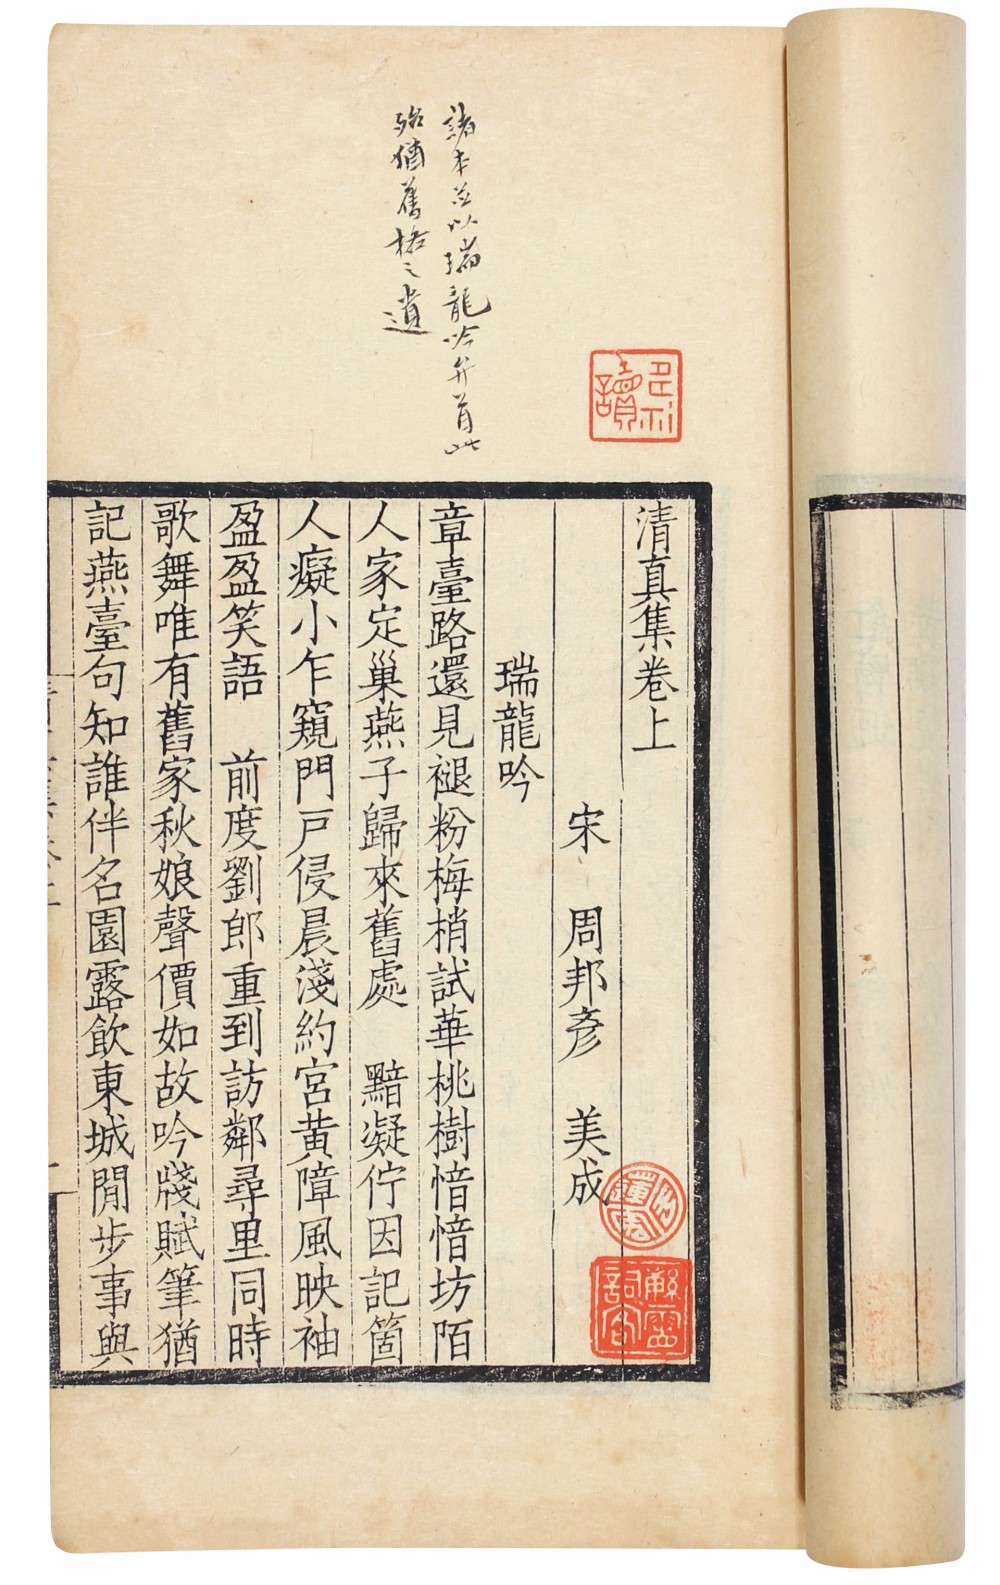 諸本並以瑞龍吟弁首此
殆猶舊格之遺
清真集卷上
宋 周邦彥 美成
瑞龍吟
章臺路還見褪粉梅梢試華桃樹愔愔坊陌
人家定巢燕子歸來舊處 黯凝佇因記箇
人癡小乍窺門戶侵晨淺約宮黃障風映袖
盈盈笑語 前度劉郎重到訪鄰尋里同時
歌舞唯有舊家秋娘聲價如故吟牋賦筆猶
記燕臺句知誰伴名園露飲東城閒步事與